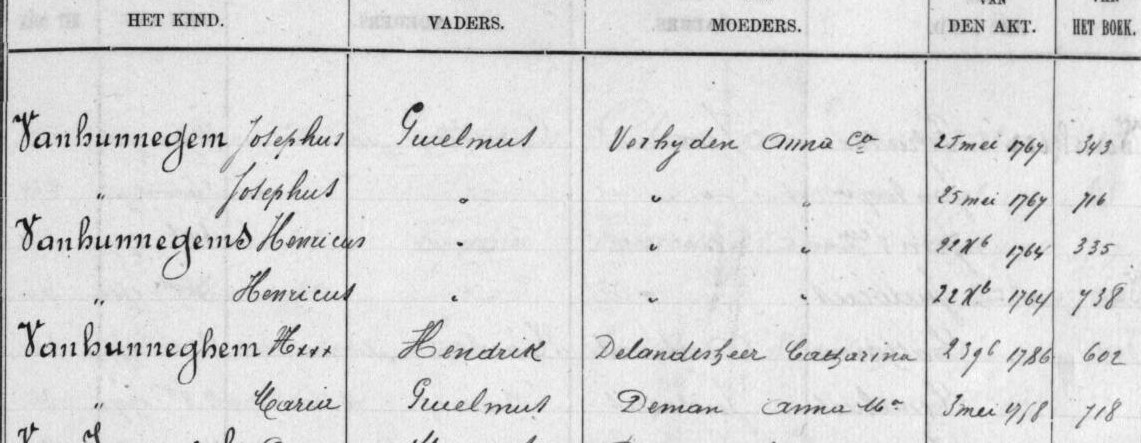 VAN VAN
HET KIND. VADERS. MOEDERS. DEN AKT. HET BOEK.
Vanhunnegem Josephus Guielmus Verhyden Anna Ca 25 mei 1767 343
" Josephus " " " 25 mei 1767 716
Vanhunnegems Henricus " " " 22 Xb 1764 335
" Henricus " " " 22 Xb 1764 738
Vanhunneghem Hxxx Hendrik Delandsheer Catharina 2 9b 1786 602
" Maria Guielmus Deman Anna Ma 3 mei 1758 718